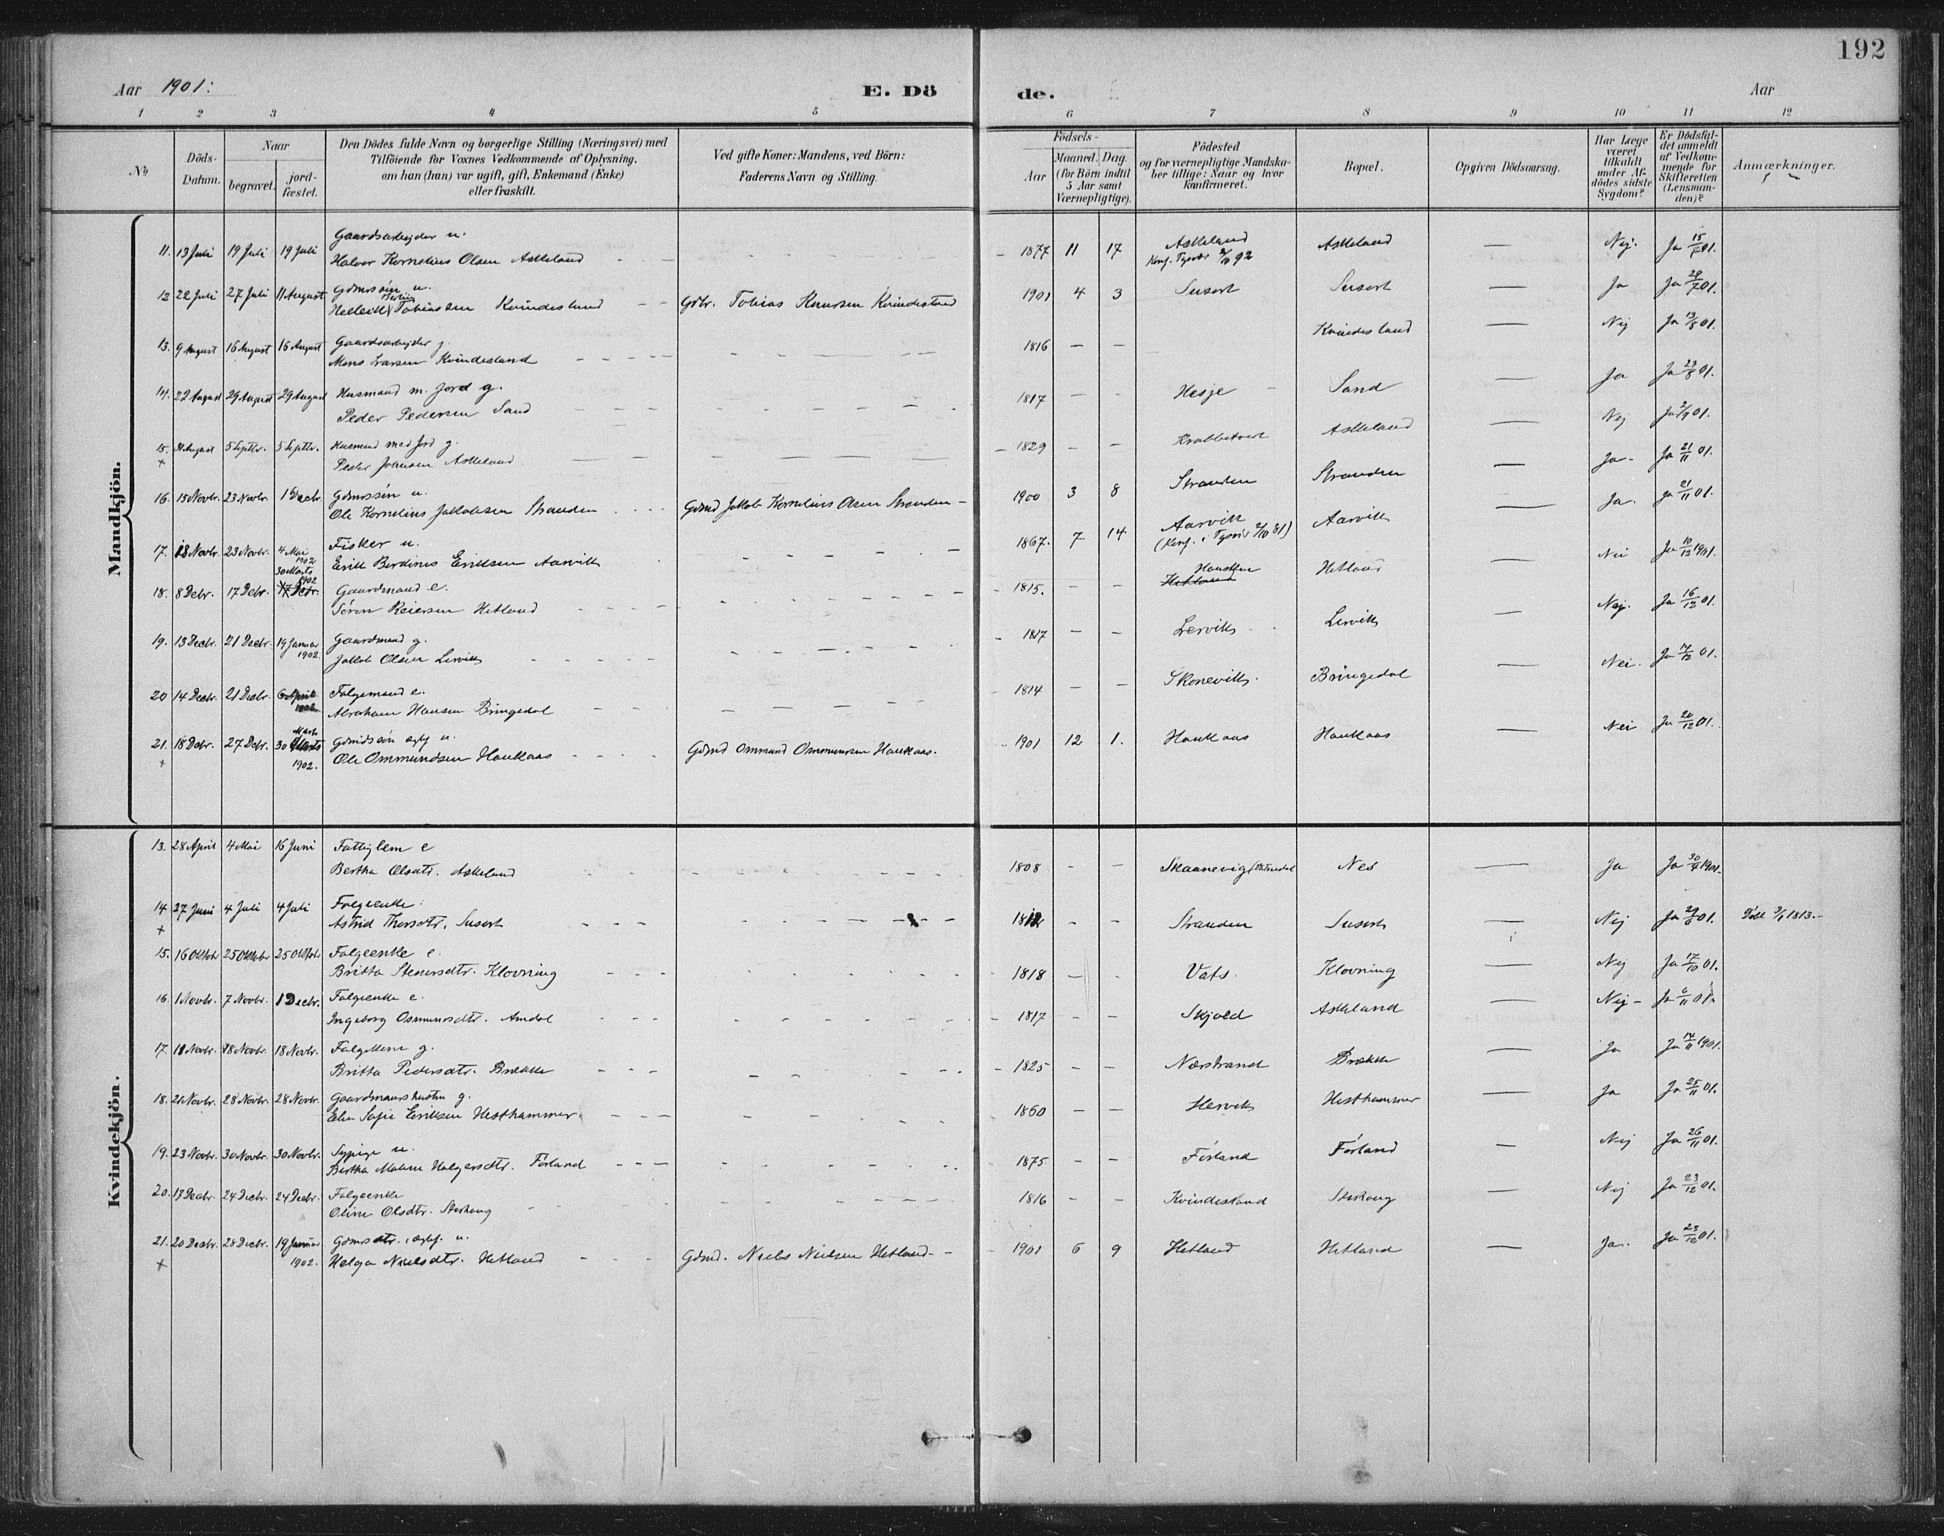 192
Aar 1901:
E. Dö
de.
Aar
1 2 3 4 5 6 7 8 9 10 11 12
No
Döds-Datum.
Naar
begravet.
jord-fæstet.
Den Dödes fulde Navn og borgerlige Stilling (Næringsvei) med
Tilföiende for Voxnes Vedkommende af Oplysning,
om han (hun) var ugift, gift, Enkemand (Enke)
eller fraskilt.
Ved gifte Koner: Mandens, ved Börn:
Faderens Navn og Stilling.
Födsels-
Aar
Maaned.
Dag.
(for Börn indtil
5 Aar samt
Værnepligtige).
Födested
og for værnepligtige Mandska-
ber tillige: Naar og hvor
konfirmeret.
Bopæl.
Opgiven Dödsaarsag.
Har Læge
været
tilkaldt
under Af-
dödes sidste
Sygdom?
Er Dödsfal-
det anmeldt
af Vedkom-
mende for
Skifteretten
(Lensman-
den)?
Anmærkninger.
Mandkjön.
11. 13 Juli 19 Juli 19 Juli Gaardsarbejder u.
Halvor Kornelius Olsen Askeland 1877 11 17 Askeland
Konf. Tysvær 2/10 92 Askeland — Nej. Ja 15/7 01.
12 22 Juli 27 Juli 11 August Gdmssøn u.
Tobiassen Kvindesland Gdbr. Tobias Knursen Kvindesland 1901 4 3 Susort Susort — Ja Ja 29/7 01.
13. 9 August 16 August 16 August Gaardsarbejder g.
Mons Larsen Kvindesland 1816 — — Kvindesland — Nej Ja 13/8 01.
14. 22 August 29 August 29 August Husmand m. Jord g.
Peder Pedersen Sand 1817 — — Hesje Sand — Ja Ja 23/8 01.
15. 31 August 5 Septbr. 5 Septbr. Husmand med Jord g.
+ Peder Johnsen Askeland 1829 — — Krabbetveit Askeland — Nej Ja 2/9 01.
16. 15 Novbr. 23 Novbr. 1 Decbr. Gdmssøn u.
Ole Kornelius Jakobsen Stranden Gdmd Jakob Kornelius Olsen Stranden 1900 3 8 Stranden Stranden — Ja. Ja 21/11 01.
17. 18 Novbr. 23 Novbr. 4 Mai 1902 Fisker u.
Erik Berdines Eriksen Aarvik 1867. 7 14 Aarvik
(Konf. i Tysvær 2/10 81) Aarvik — Ja. Ja 21/11 01.
18. 8 Debr. 17 Debr. 30 Marts 1902 17 Debr. Gaardmand e.
Søren Reiersen Hetland 1815. Hetland Hetland — Nei Ja 10/12 1901.
19. 13 Decbr. 21 Decbr. 19 Januar 1902. Gaardmand g.
Jakob Olsen Lervik 1817 — — Lervik Lervik — Nej. Ja 16/12 01.
20 14 Decbr. 21 Decbr. 6 April 1902. Folgemand e.
Abraham Hansen Bringedal 1814 — — Skonevik. Bringedal — Nei. Ja 17/12 01.
21. 18 Debr. 27 Debr. 30 Marts 1902. Gdmdssøn ægtf u.
+ Ole Ommundsen Haukaas Gdmd Ommund Ommundsen Haukaas. 1901 12 1. Haukaas Haukaas — Nei Ja 20/12 01.
Kvindekjön.
13. 28 April 4 Mai 16 Juni Fattiglem e
Bertha Olsdtr. Askeland 1808 — — Skaanevig Nes — Ja Ja 30/4 1901.
14 27 Juni 4 Juli 4 Juli Folgeenke.
+ Astrid Thorsdtr. Susort 1812 Stranden Susort — Nej Ja 29/6 01. Født 1813.
15. 16 Oktobr 25 Oktobr 25 Oktobr Folgeenke e.
Britta Stenersdtr. Klovning 1818 — — Vats. Klovning — Nej Ja 17/10 01.
16. 1 Novbr. 7 Novbr. 1 Decbr. Folgeenke e.
Ingeborg Osmundsdtr. Amdal 1817 — — Skjold Askeland — Nej — Ja 6/11 01.
17. 11 Novbr. 18 Novbr. 18 Novbr. Folgekone g.
Britta Pedersdtr. Brække 1825 — — Nærstrand Brække — Ja Ja 14/11 1901.
18. 21 Novbr. 28 Novbr. 28 Novbr. Gaardmandshustru g.
Elen Sofie Eriksen Hesthammer 1860 — — Hervik Hesthammer — Ja Ja 25/11 01.
19. 23 Novbr. 30 Novbr. 30 Novbr. Sypige u.
Bertha Malene Holgersdtr. Førland 1875 — — Førland Førland — Nej Ja 26/11 01.
20. 17 Decbr. 24 Decbr. 24 Decbr. Folgeenke
Oline Olsdtr. 1816 — — Kvindesland — Nej Ja 23/12 01.
21. 20 Decbr. 28 Decbr. 19 Januar 1902. Gdmdsdtr. ægtf. u.
+ Helga Nielsdtr. Hetland Gdmd. Niels Nielsen Hetland 1901 6 9 Hetland Hetland — Ja. Ja 23/12 01.